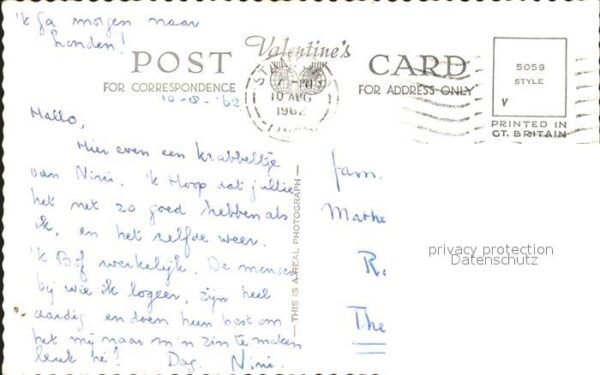 'k Ga morgen naar
Londen!
Valentine's
POST CARD
FOR CORRESPONDENCE
FOR ADDRESS ONLY
5059
STYLE
V
PRINTED IN
GT. BRITAIN
10 AUG
1962
10-8-'62
Hallo,
Hier even een krabbeltje
van Nini. 'k Hoop dat jullie
het net zo goed hebben als
ik, en het zelfde weer.
'k Bof werkelijk. De mensen
bij wie ik logeer, zijn heel
aardig en doen hun best om
het mij naar m'n zin te maken
leuk hè! Dag. Nini.
THIS IS A REAL PHOTOGRAPH
fam.
Mathe
R.
The
privacy protection
Datenschutz